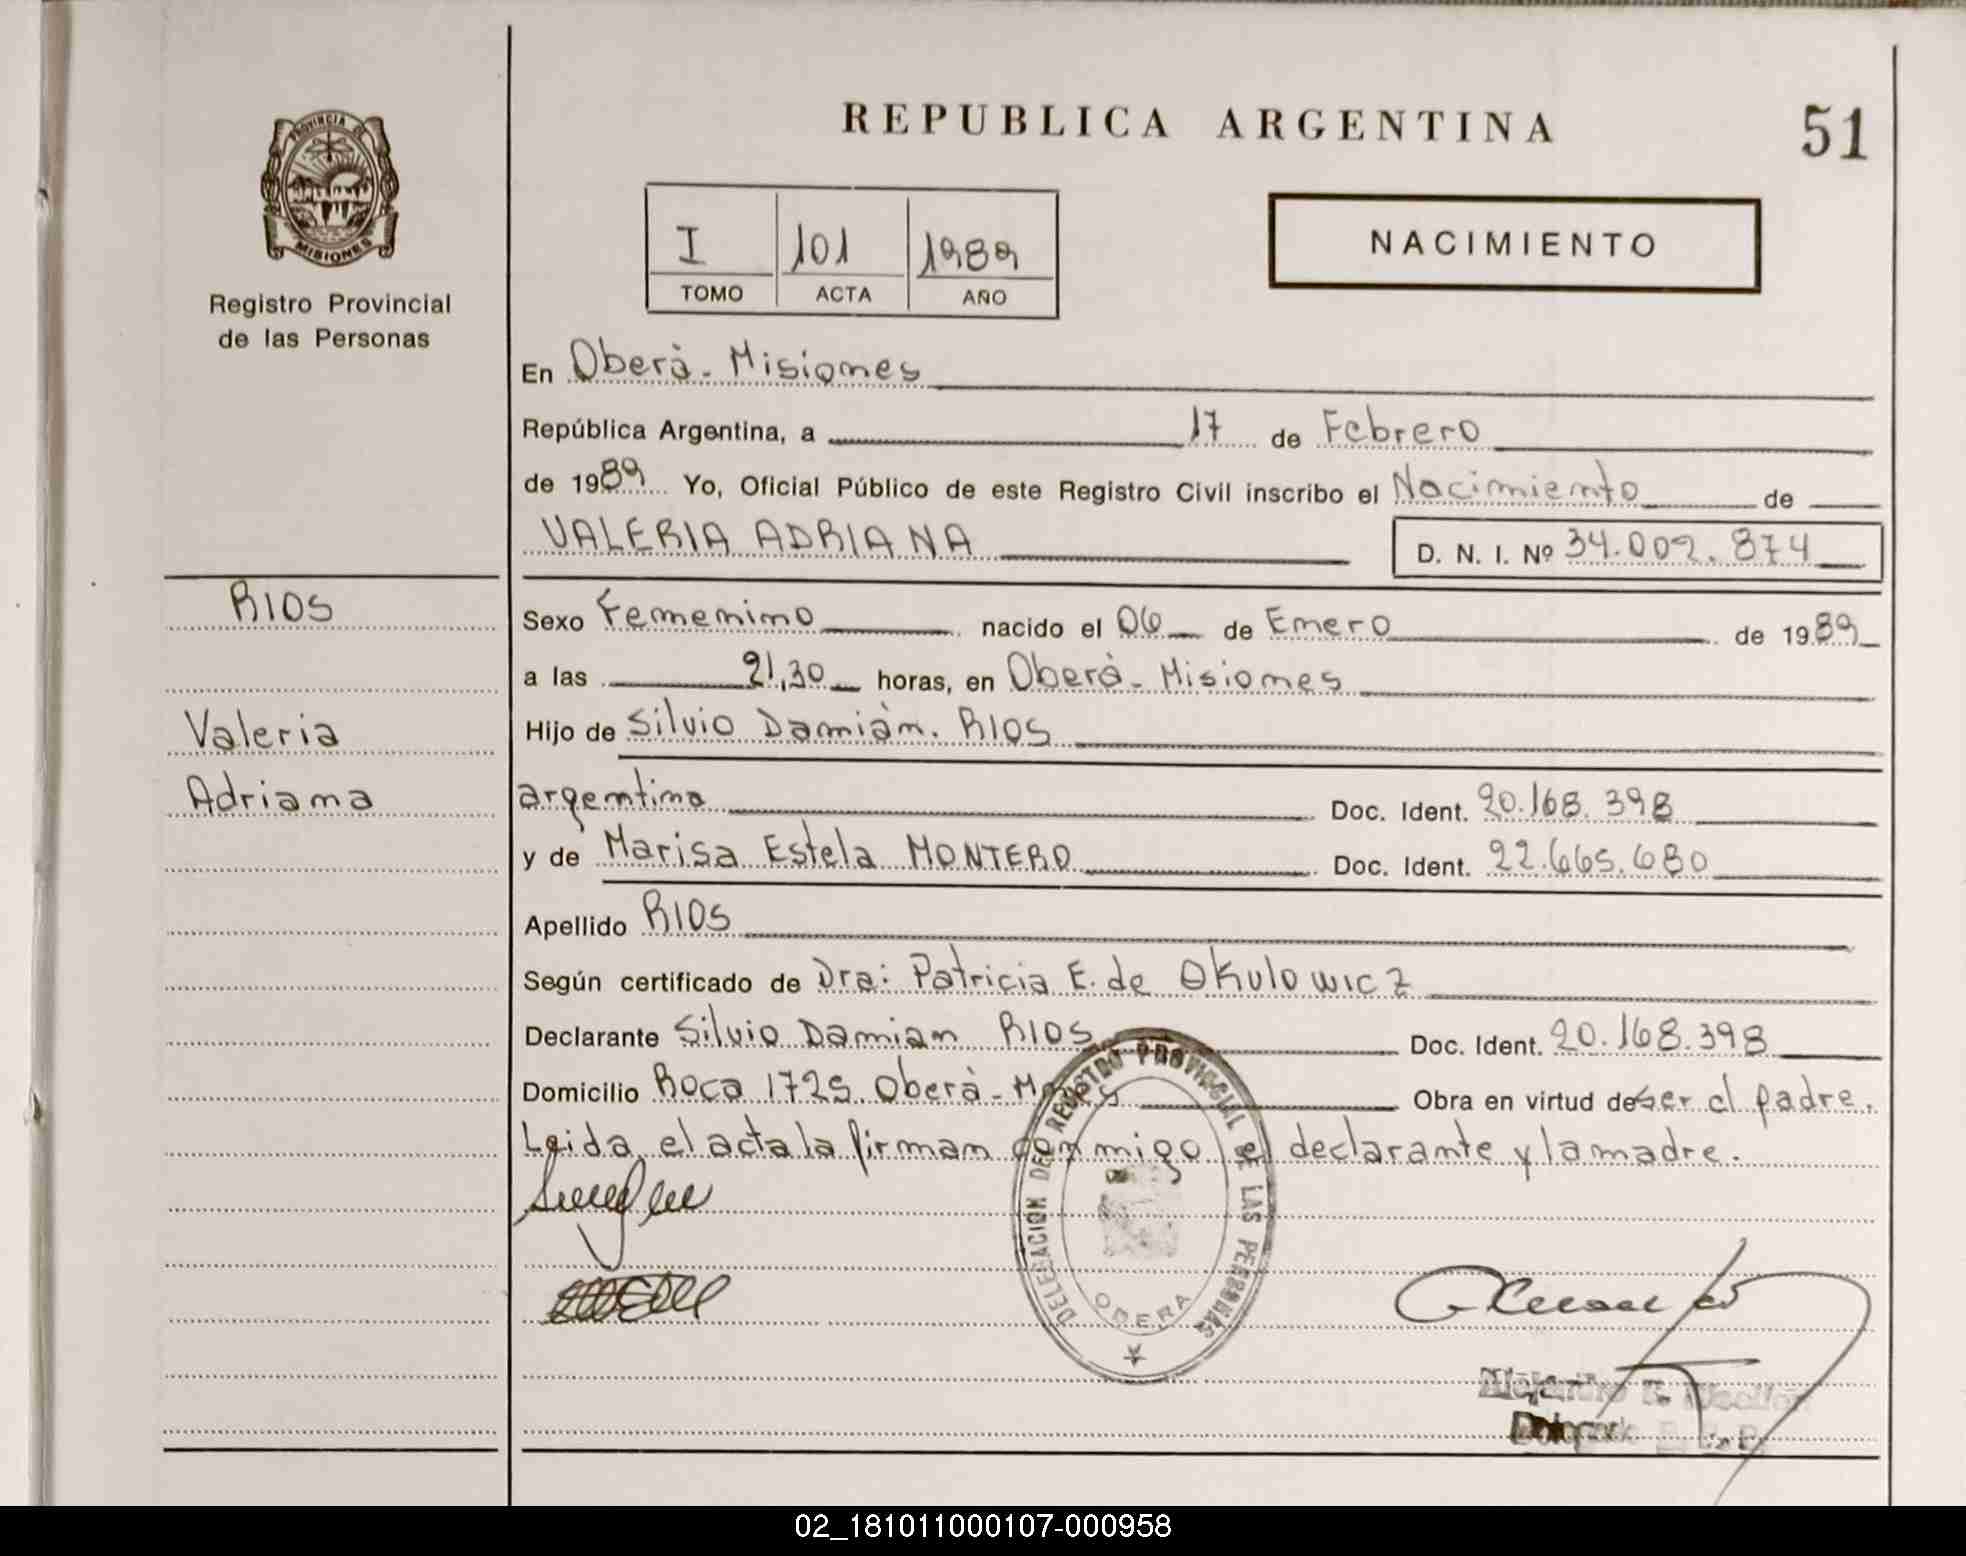 REPUBLICA ARGENTINA
51
PROVINCIA DE
MISIONES
Registro Provincial
de las Personas
I 101 1989
TOMO ACTA AÑO
NACIMIENTO
En Oberà - Misiones
República Argentina, a 17 de Febrero
de 1989 Yo, Oficial Público de este Registro Civil inscribo el Nacimiento de
VALERIA ADRIANA
D. N. I. Nº 34.002.874
RIOS
Valeria
Adriana
Sexo Femenino nacido el 06 de Enero de 1989
a las 21,30 horas, en Oberà - Misiones
Hijo de Silvio Damiàn. RIOS
argentina Doc. Ident. 20.168.398
y de Marisa Estela MONTERO Doc. Ident. 22.665.680
Apellido RIOS
Según certificado de Dra: Patricia E. de Okulowicz
Declarante Silvio Damian RIOS Doc. Ident. 20.168.398
Domicilio Roca 1725 Oberà - Obra en virtud de ser el padre.
Leida el acta la firman conmigo el declarante y la madre.
DELEGACIÓN DEL REGISTRO PROVINCIAL DE LAS PERSONAS
OBERA
02_181011000107-000958